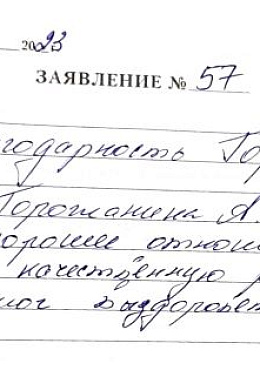 2023
ЗАЯВЛЕНИЕ № 57
годарность Гор
Горогланина А.
орошее отнош
качественную р
мог выздоровет